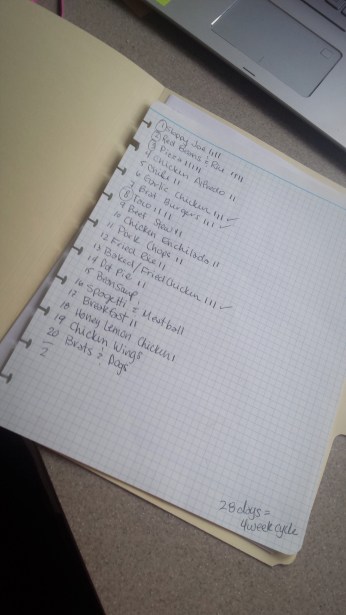 1 Sloppy Joe IIII
2 Red Beans & Rice IIII
3 Pizza IIIII
4 Chicken Alfredo II
5 II
6 Garlic Chicken III ✓
7 Brat Burgers III ✓
8 Taco IIIII
9 Beef Stew II
10 Chicken Enchilada II
11 Pork Chops II
12 Fried Rice II
13 Baked/Fried Chicken III ✓
14 Pot Pie II
15 Bean Soup
16 Spagetti & Meatball
17 Breakfast II
18 Honey Lemon Chicken I
19 Chicken Wings
20 Brats & Dogs
2
28 days =
4 week cycle